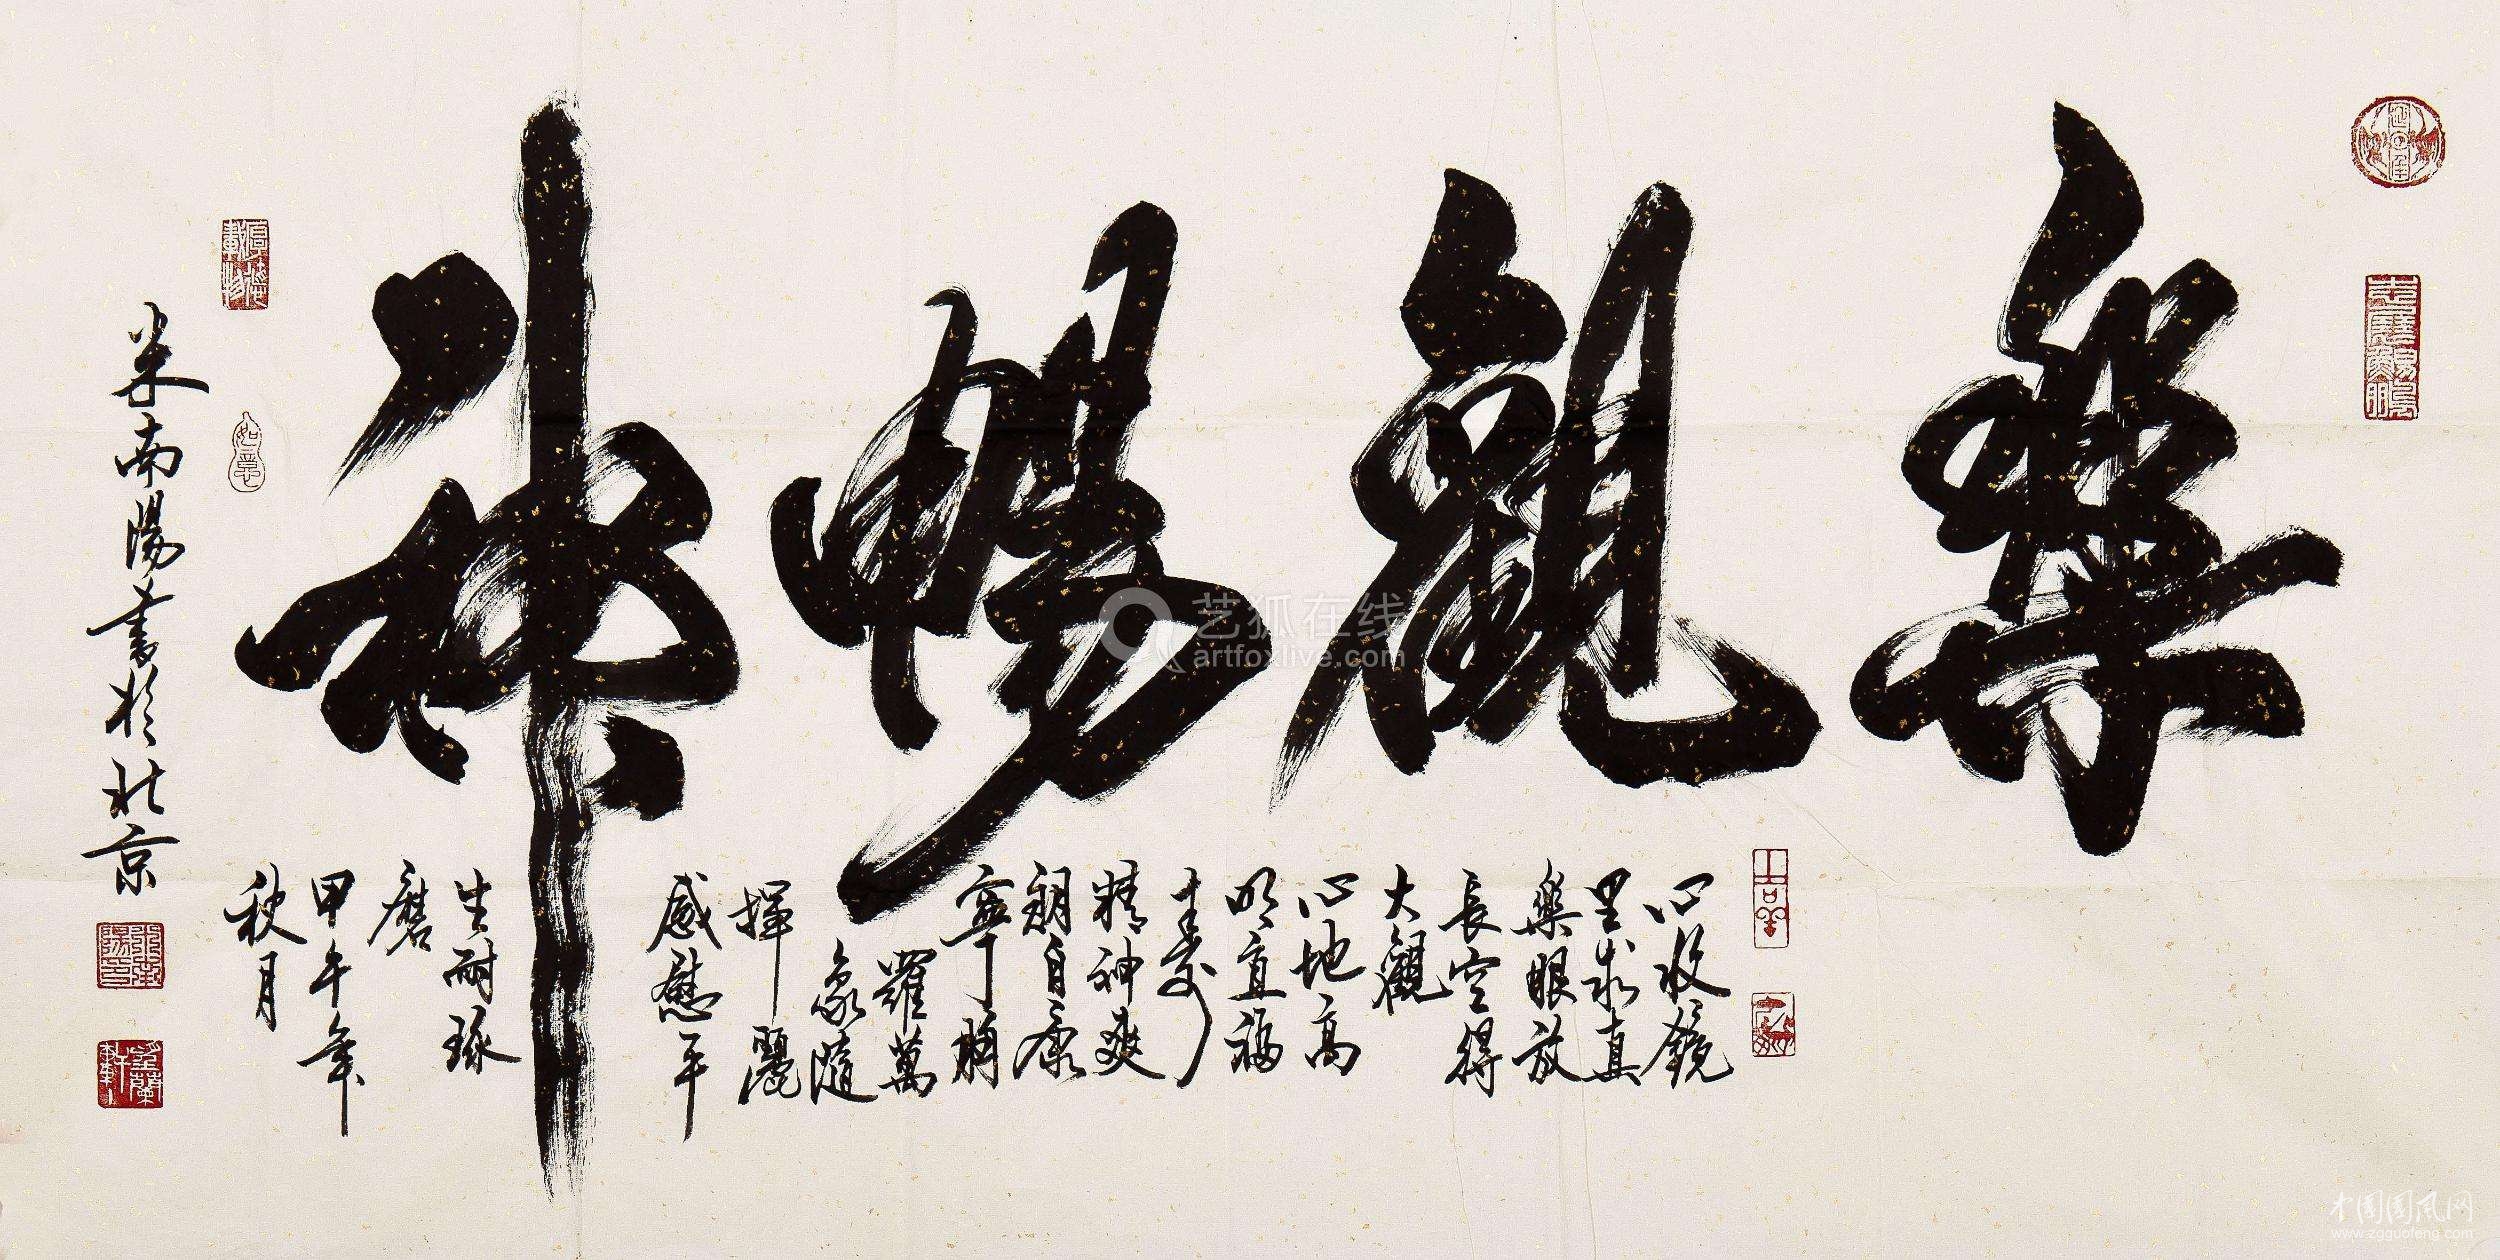 樂觀暢神
心收鏡
里求真
樂眼放
長空得
大觀
心地高
明直福
壽
精神爽
朗自康
寧丁酉
羅萬
象隨
揮灑
感慰平
生耐琢
磨
甲午年
秋月
米南陽書於北京
如意
厚德載物
艺狐在线
artfoxlive.com
中国国风网
www.zgguofeng.com